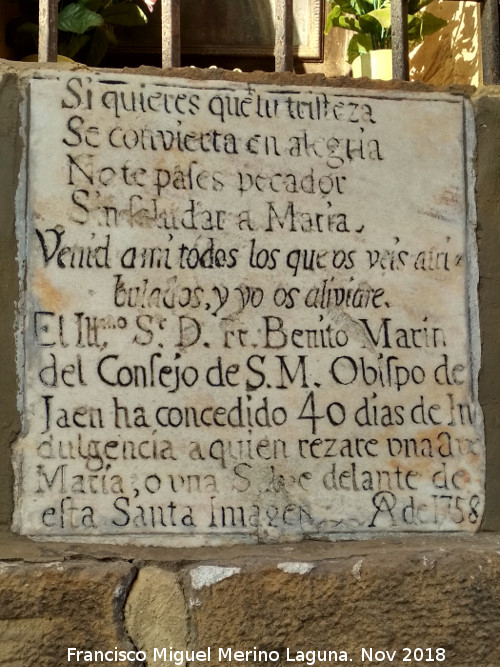 Si quieres que tu tristeza
Se convierta en alegria
No te pases pecador
Sin saludar a Maria.
Venid a mi todos los que os veis atri-
bulados, y yo os aliviare.
El Ill.mo Sr. D. Fr. Benito Marin
del Consejo de S.M. Obispo de
Jaen ha concedido 40 dias de In
dulgencia a quien rezare vna Ave
Maria, o vna Salve delante de
esta Santa Imagen A de 1758
Francisco Miguel Merino Laguna. Nov 2018